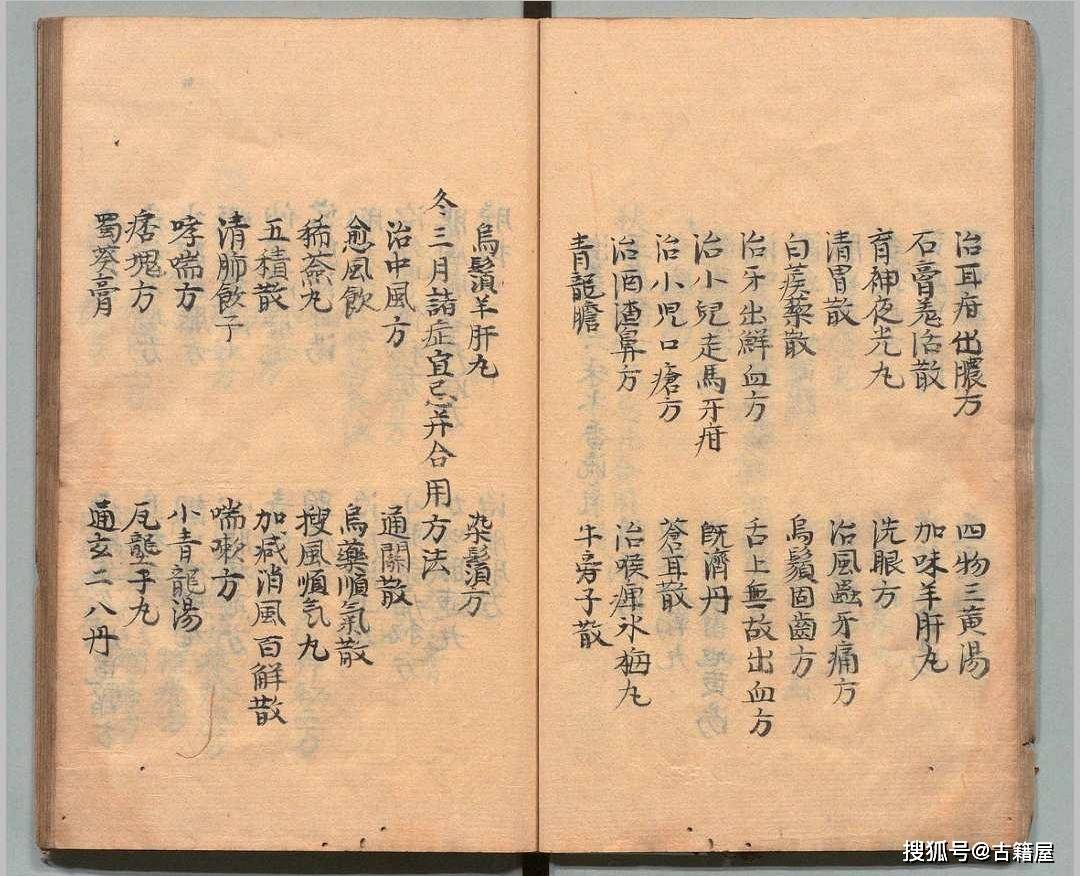 治耳疳出膿方　四物三黄湯
石膏羗活散　加味羊肝丸
育神夜光丸　洗眼方
清胃散　治風蟲牙痛方
白蒺藜散　烏鬚固齒方
治牙出鮮血方　舌上無故出血方
治小兒走馬牙疳　既濟丹
治小児口瘡方　蒼耳散
治酒渣鼻方　治喉痺氷梅丸
青龍膽　牛旁子散
烏鬚羊肝丸　染鬚方
冬三月諸症宜忌并合用方法
治中風方　通關散
愈風飲　烏藥順氣散
豨薟丸　搜風順気丸
五積散　加减消風百解散
清肺飲子　喘嗽方
哮喘方　小青龍湯
痞塊方　瓦壟子丸
蜀葵膏　通玄二八丹
搜狐号@古籍屋